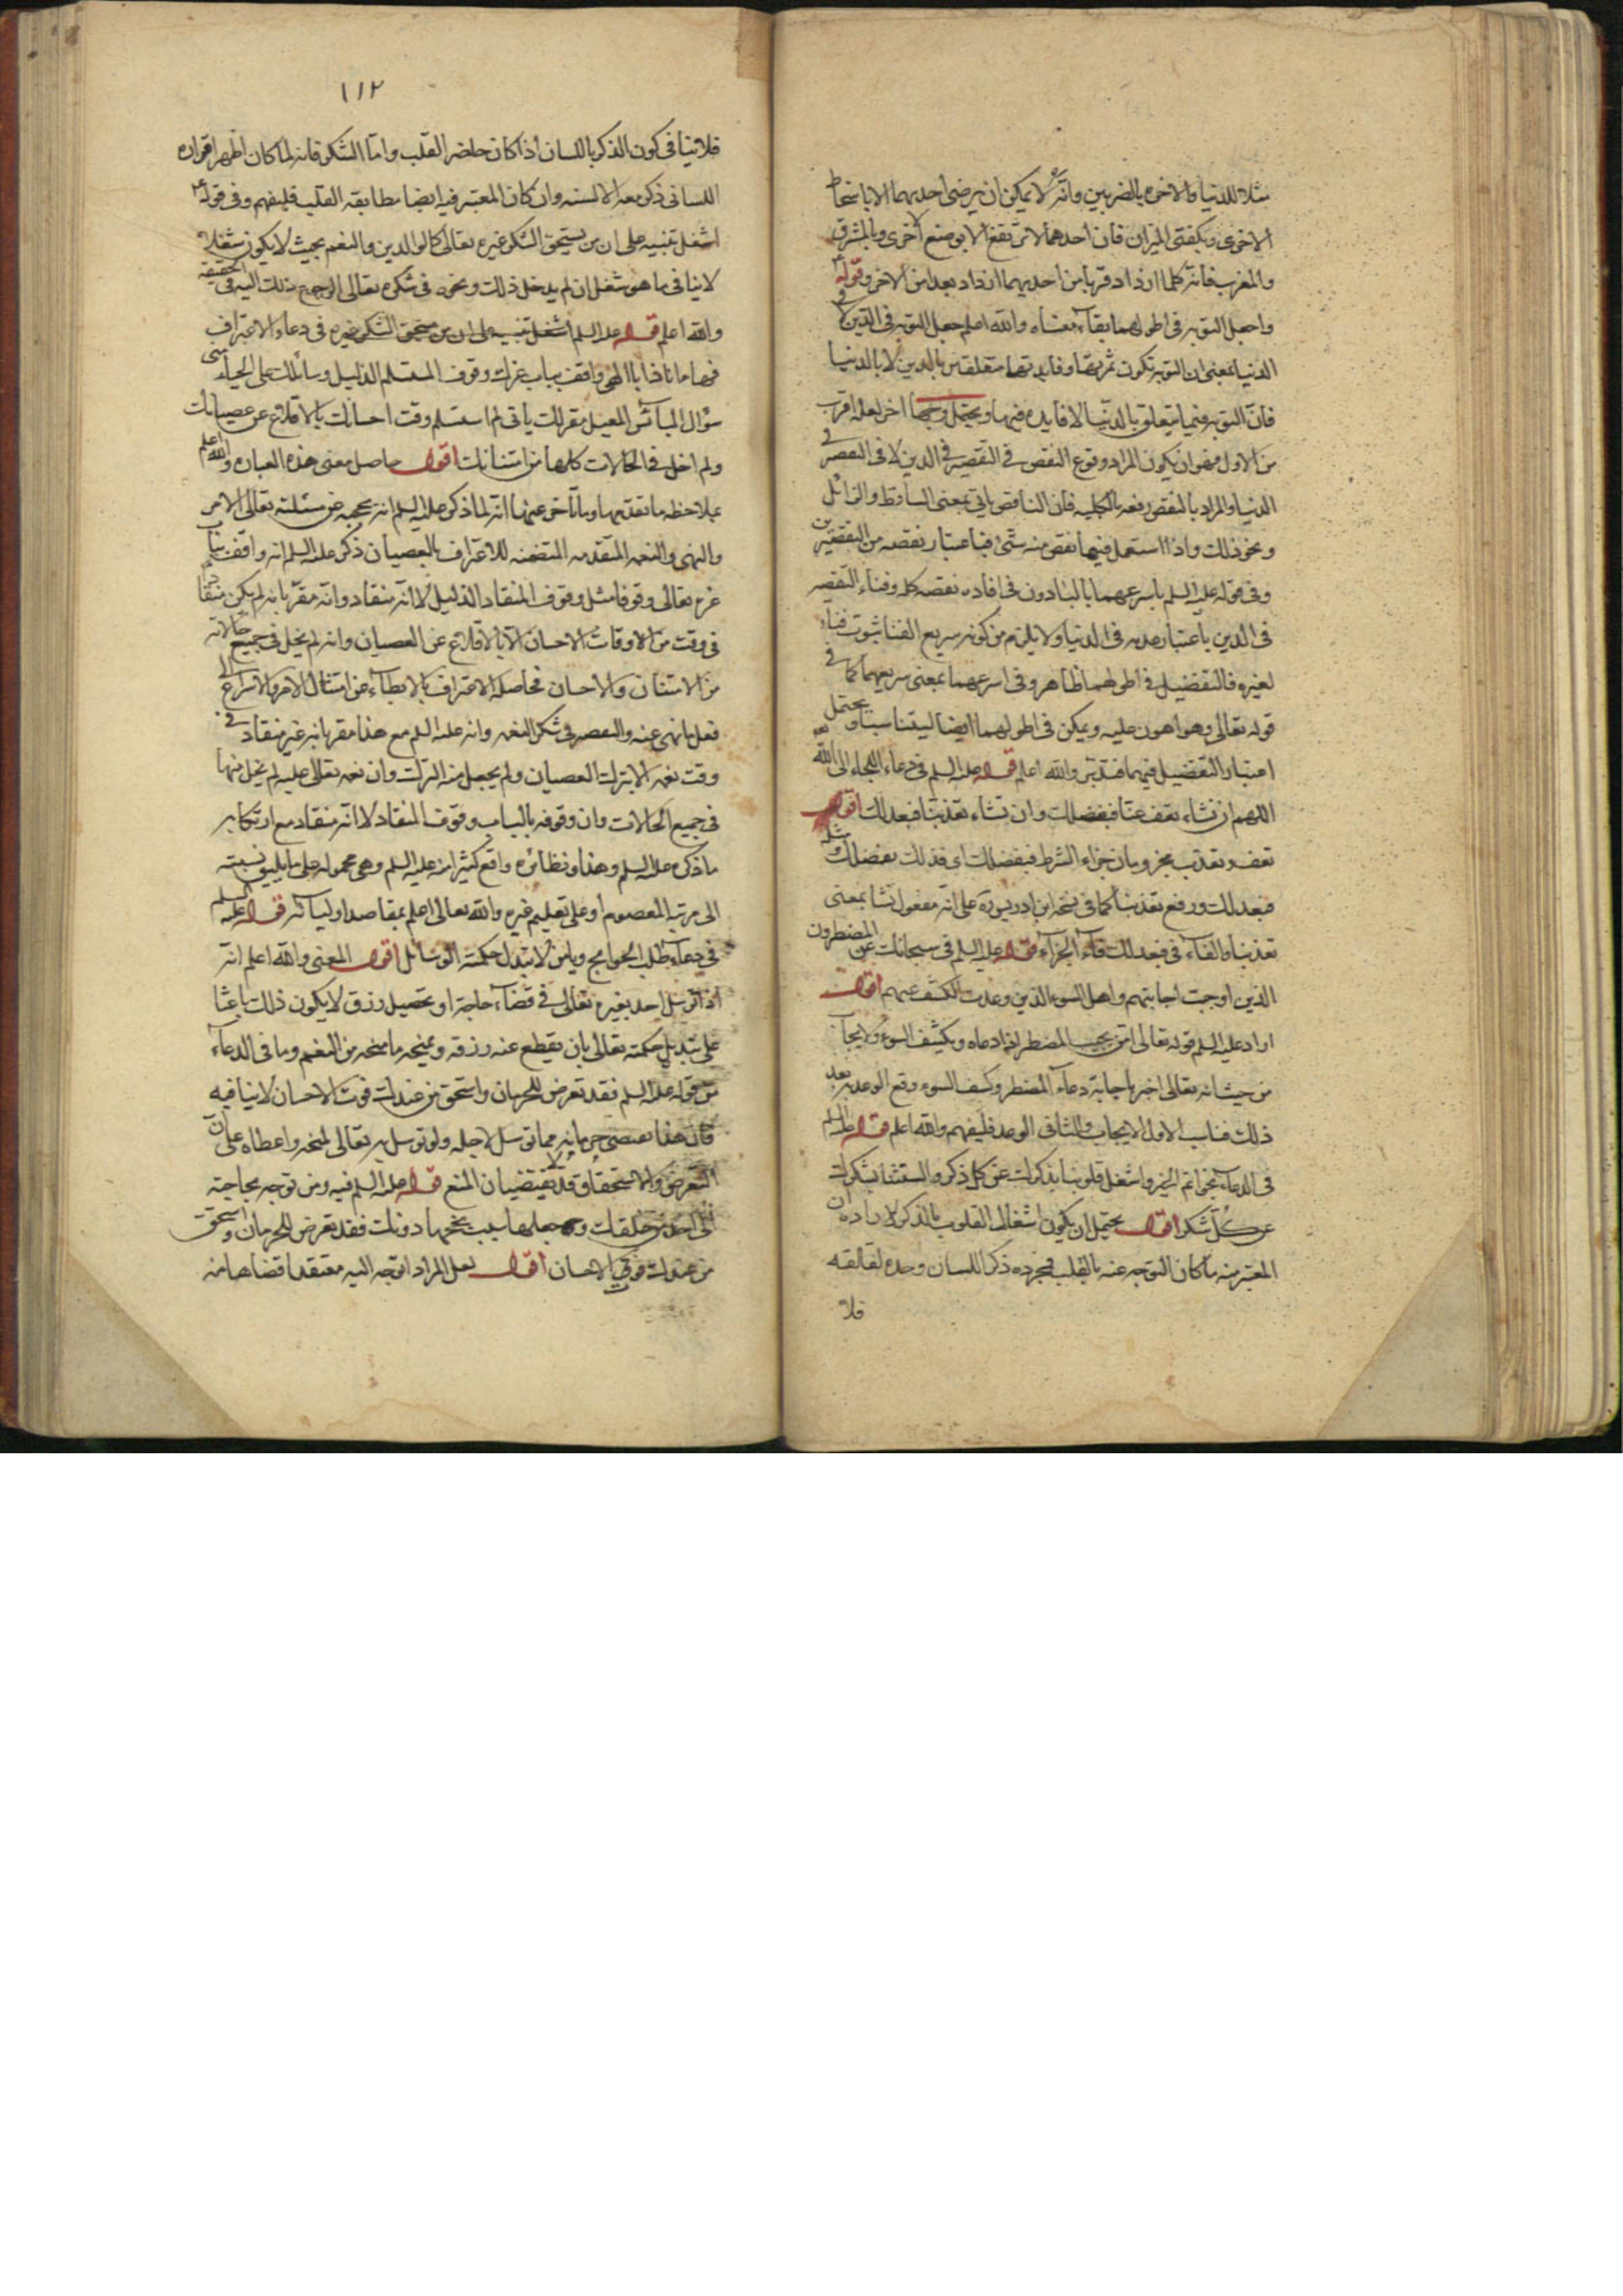 مثلا للدنيا والاخره بالضربين وانه لا يمكن ان يرضى احديهما الا باسخاط
الاخرى وبكفتى الميزان فان احدهما لا ترتفع الا بوضع الاخرى وبالمشرق
والمغرب فانه كلما ازداد قربا من احديهما ازداد بعدا من الاخر وقوله
واجعل التوبه فى اطولهما بقاء معناه والله اعلم جعل التوبه فى الدين لا فى
الدنيا بمعنى ان التوبه تكون ثمرتها وفايدتها متعلقتين بالدين لا بالدنيا
فان التوبه فيما يتعلق بالدنيا لا فايده فيها ويحتمل وجها اخر لعله اقرب
من الاول وهو ان يكون المراد وقوع النقص فى التقصير فى الدين لا فى التقصير فى
الدنيا والمراد بالنقص رفعه بالكليه فان الناقص ياتى بمعنى الساقط والزائل
ونحو ذلك واذا استعمل فيهما نقص منه شئ فباعتبار نقصه من التقصيرين
وفى قوله عليه السلم باسرعهما بالباء دون فى افاده نقصه كله وفناء النقيصه
فى الدين باعتبار عدمه فى الدنيا ولا يلزم من كونه سريع الفنا ثبوت فناء
لغيره فالتفضيل فى اطولهما ظاهر وفى اسرعهما بمعنى سريعهما كما فى
قوله تعالى وهو اهون عليه ويمكن فى اطولهما ايضا ليتناسبا ويحتمل
اعتبار التفضيل فيهما فتدبر والله اعلم قوله عليه السلم فى دعاء اللجاء الى الله
اللهم ان تشاء تعف عنا فبفضلك وان تشاء تعذبنا فبعدلك اقول
تعف وتعذب مجزومان جزاء الشرط فبفضلك اى فذلك بفضلك ومثله
فبعدلك ورفع تعذبنا كما فى نسخه ابن ادريس ره على انه مفعول تشا بمعنى
تعذيبنا والفاء فى فبعدلك فاء الجزاء قوله عليه السلم فى سبحانك نحن المضطرون
الذين اوجبت اجابتهم واهل السوء الذين وعدت الكشف عنهم اقول
اراد عليه السلم قوله تعالى امن يجيب المضطر اذا دعاه ويكشف السوء والايجاب
من حيث انه تعالى اخبر باجابة دعاء المضطر وكشف السوء وقع الوعد به بعد
ذلك فناسب الاول الايجاب والثانى الوعد فليفهم والله اعلم قوله عليه السلم
فى الدعاء بخواتم الخير واشغل قلوبنا بذكرك عن كل ذكر والسنتنا بشكرك
عن كل شكر اقول يحتمل ان يكون اشغال القلوب بالذكر لارادة ان
المعتبر منه ما كان التوجه عنه بالقلب فمجرده ذكر اللسان وحده لقلقه
فلا
١١٢
فلا ينافى كون الذكر باللسان اذا كان حاضر القلب واما الشكر فانه لما كان اظهر افراده
اللسانى ذكر معه الالسنه وان كان المعتبر فيه ايضا مطابقه القلب فليفهم وفى قوله
اشغل تنبيه على ان من يستحق الشكر غيره تعالى كالوالدين والنعم بحيث لا يكون شغلا
لا ينافى ما هو شغل ان لم يدخل ذلك ونحوه فى شكره تعالى لرجوع ذلك اليه فى الحقيقه
والله اعلم قوله عليه السلم اشغل تنبيه على ان من يستحق الشكر غيره فى دعاء الاعتراف
فها انا ذا يا الهى واقف بباب عزك وقوف المستسلم الذليل وسائلك على الحياء منى
سؤال البائس المعيل مقر لك بانى لم استسلم وقت احسانك الا بالاقلاع عن عصيانك
ولم اخل فى الحالات كلها من امتنانك اقول حاصل معنى هذه العباره والله اعلم
بملاحظه ما تقدمها وما تاخر عنها انه لما ذكر عليه السلم انه يحجبه عن مسئلته تعالى الامر
والنهى والنعمه المتقدمه المتضمنه للاعتراف بالعصيان ذكر عليه السلم انه واقف بباب
عزه تعالى وقوفا مثل وقوف المنقاد الذليل لا انه منقاد وانه مقر بانه لم يكن منقادا
فى وقت من الاوقات الاحسان الا بالاقلاع عن العصيان وانه لم يخل فى جميع حالاته
من الامتنان والاحسان فحاصله الاعتراف بالابطاء عن امتثال الامر والاسراع الى
فعل ما نهى عنه والتقصير فى شكر النعم وانه عليه السلم مع هذا مقر بانه غير منقاد فى
وقت نعمه الا بترك العصيان ولم يحصل منه الترك وان نعمه تعالى عليه لم يخل منها
فى جميع الحالات وان وقوفه بالباب وقوف المنقاد لا انه منقاد مع ارتكابه
ما ذكره عليه السلم وهذا ونظائره واقع كثيرا منه عليه السلم وهى محموله على ما يليق نسبته
الى مرتبة المعصوم او على تعليم غيره والله تعالى اعلم بمقاصد اوليائه قوله عليه السلم
فى دعاء طلب الحوائج ويا من لا تبدل حكمته الوسائل اقول المعنى والله اعلم انه
اذا توسل احد بغيره تعالى فى قضاء حاجة او تحصيل رزق لا يكون ذلك باعثا
على تبديل حكمته تعالى بان يقطع عنه رزقه ويمنحه ما منحه من النعم وما فى الدعاء
من قوله عليه السلم فقد تعرض للحرمان واستحق من عندك فوت الاحسان لا ينافيه
فان هذا يقتضى حرمانه مما توسل لاجله ولو توسل به تعالى لمنحه واعطاه على ان
التعرض والاستحقاق قد لا يقتضيان المنع قوله عليه السلم فيه ومن توجه بحاجته
الى احد من خلقك وجعله سبب نجحها دونك فقد تعرض للحرمان واستحق
من عندك فوت الاحسان اقول لعل المراد توجه اليه معتقدا قضاها منه